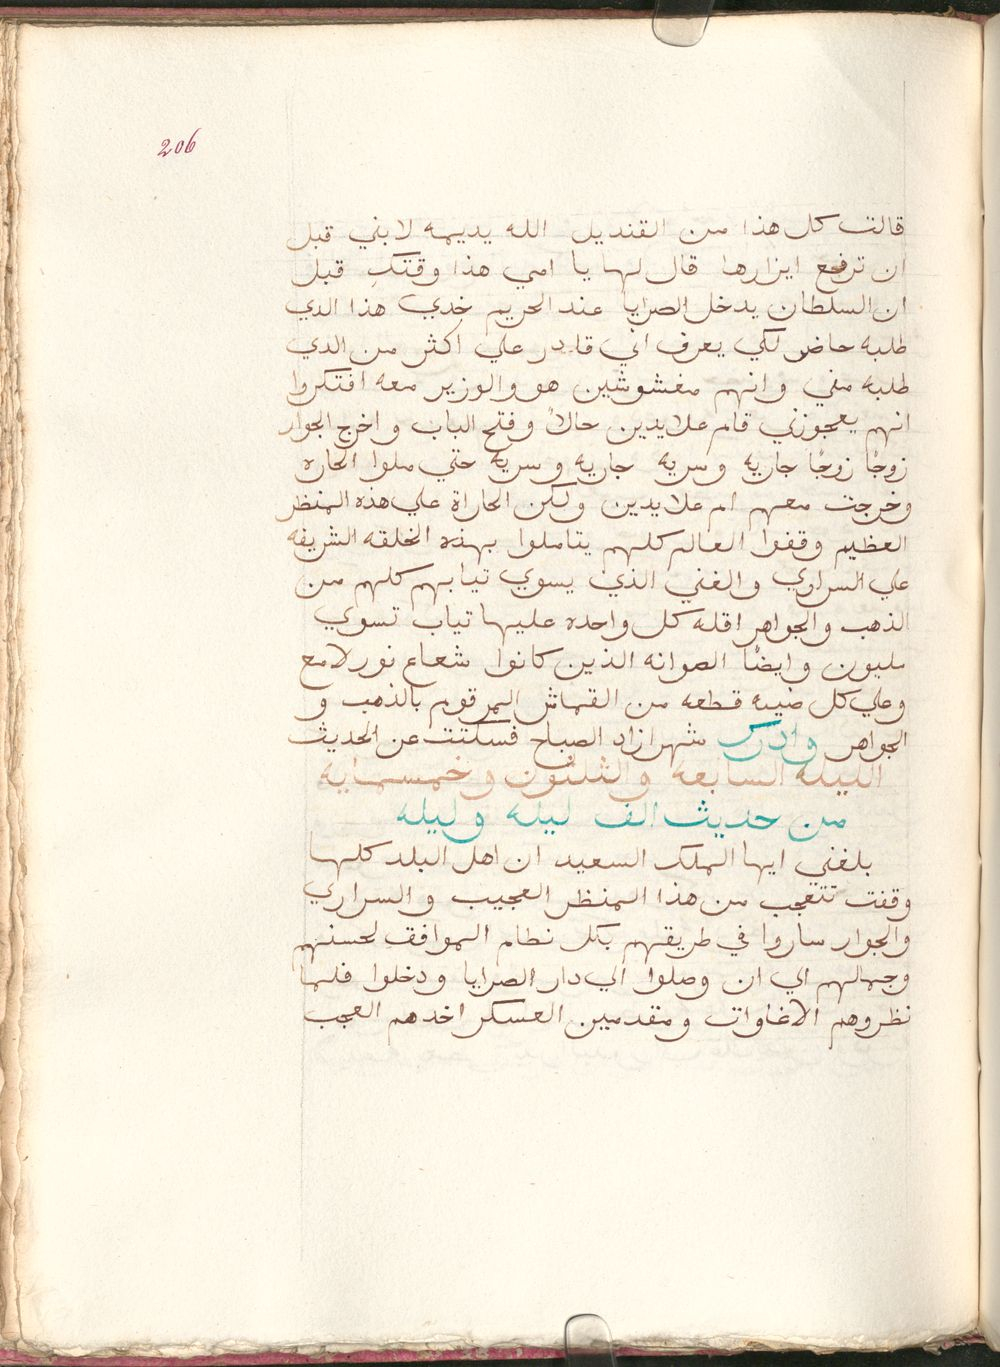 206
قالت كل هذا من القنديل الله يديمه لابني قبل
ان ترفع ايزارها قال لها يا امي هذا وقتكِ قبل
ان السلطان يدخل الصرايا عند الحريم خدي هذا الدي
طلبه حاضر لكي يعرف اني قادر علي اكثر من الدي
طلبه مني وانهم مغشوشين هو والوزير معه افتكروا
انهم يعجوزني قام علايدين حالاً وفتح الباب واخرج الجوار
زوجًا زوجًا جاريه وسريه جاريه وسريه حتي ملوا الحاره
وخرجت معهم ام علايدين ولكن الحاراة علي هذه المنظر
العظيم وقفوا العالم كلهم يتاملوا بهذه الخلقه الشريفه
علي السراري والغني الذي يسوي تيابهم كلهم من
الذهب والجواهر اقله كل واحده عليها تياب تسوي
مليون وايضًا الصوانه الذين كانوا شعاع نور لامع
وعلي كل صنيه قطعه من القماش المرقوم بالذهب و
الجواهر وادرك شهرازاد الصباح فسكتت عن الحديث
الليله السابعه والثلثون وخمسمايه
من حديث الف ليله وليله
بلغني ايها الملك السعيد ان اهل البلد كلها
وقفت تتعجب من هذا المنظر العجيب والسراري
والجوار ساروا في طريقهم بكل نظام الموافق لحسنهم
وجمالهم الي ان وصلوا الي دار الصرايا ودخلوا فلما
نظروهم الاغاوات ومقدمين العسكر اخدهم العجب